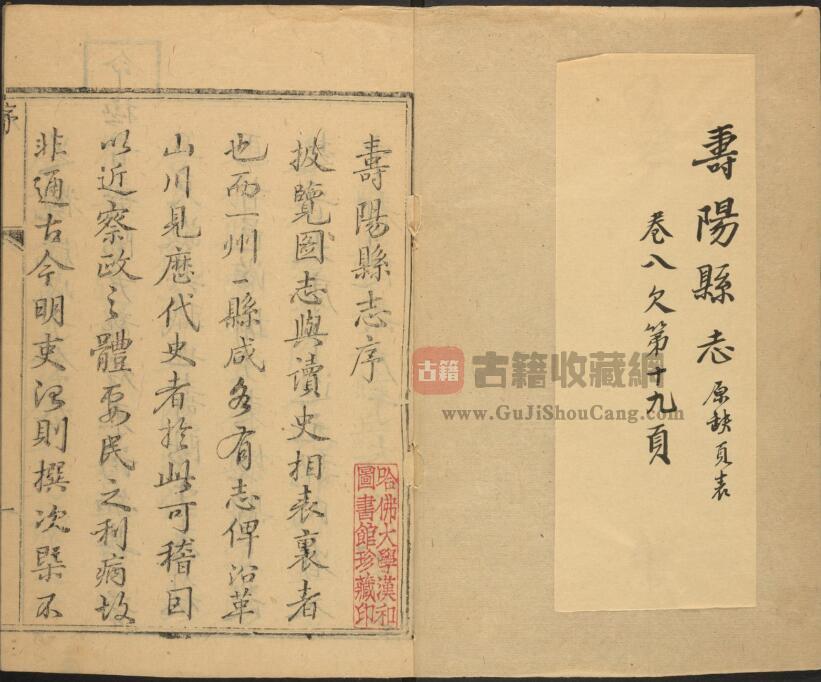 壽陽縣志 原缺頁表
卷八欠第十九頁
壽陽縣志序
披覽圖志與讀史相表裏者
也而一州一縣咸各有志俾沿革
山川見歷代史者於此可稽因
以近察政之體要民之利病故
非通古今明吏治則撰次槩不
序
一
哈佛大學漢和
圖書館珍藏印
古籍 古籍收藏網
www.GuJiShouCang.com